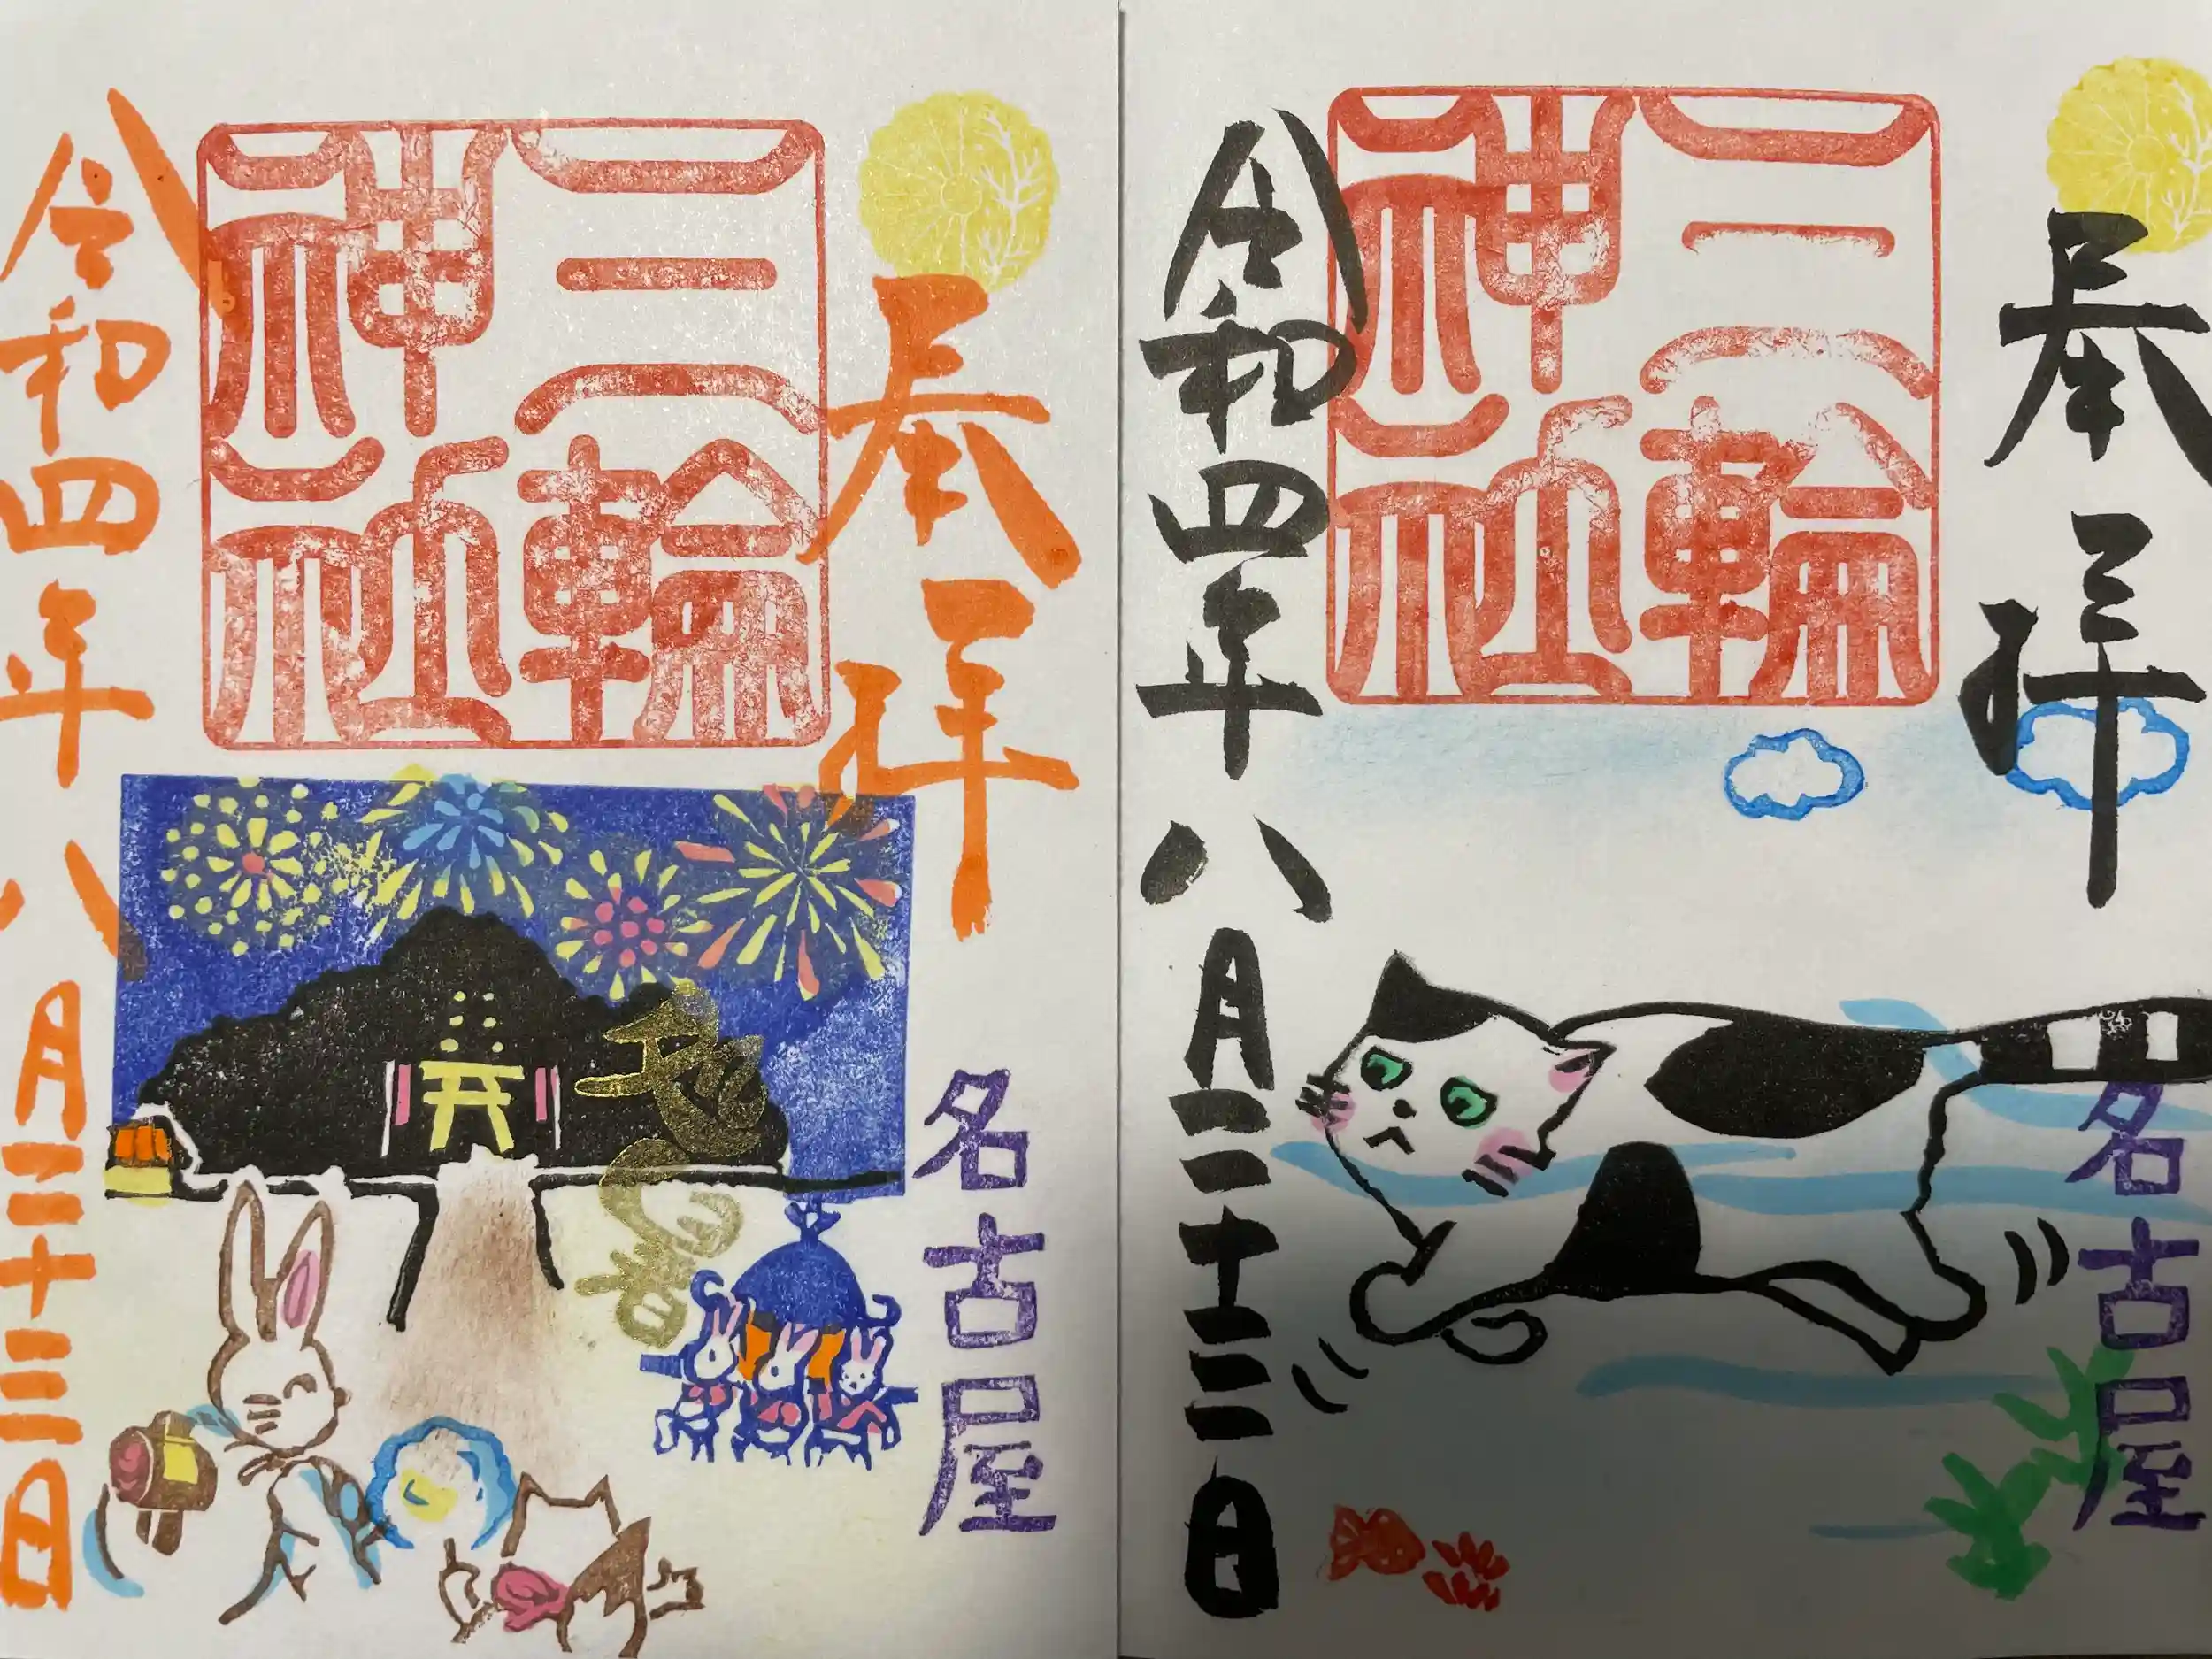 奉拝
三輪
神社
名古屋
令和四年八月二十三日
奉拝
三輪
神社
名古屋
令和四年八月二十三日